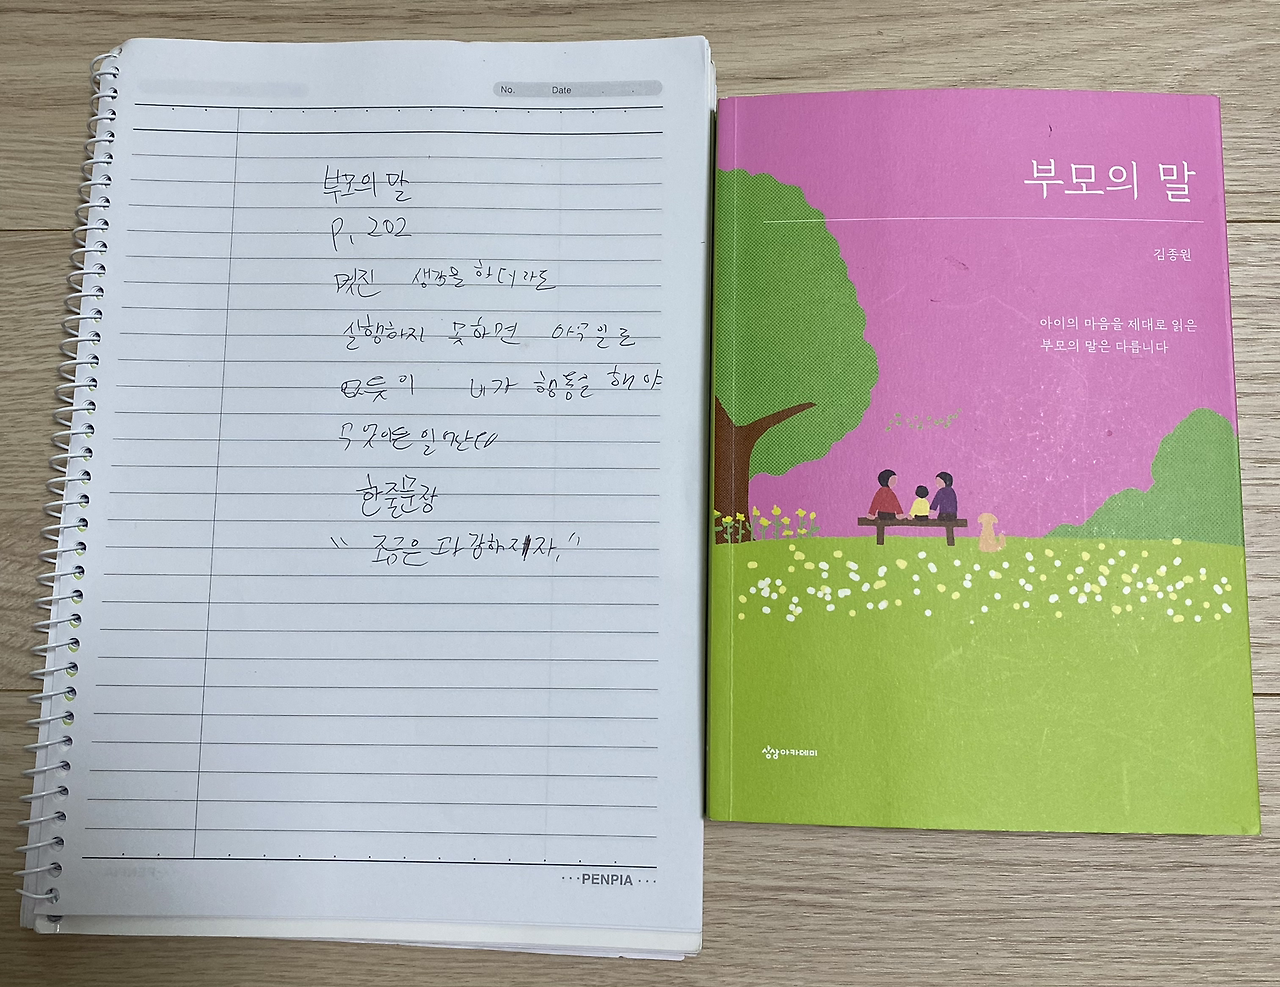 No. Date
부모의 말
P. 202
멋진 생각을 하더라도
실행하지 못하면 아무일도
없듯이 내가 행동을 해야
무엇이든 일어난다
한줄문장
"조금은 과감해지자."
PENPIA
부모의 말
김종원
아이의 마음을 제대로 읽은
부모의 말은 다릅니다
상상아카데미